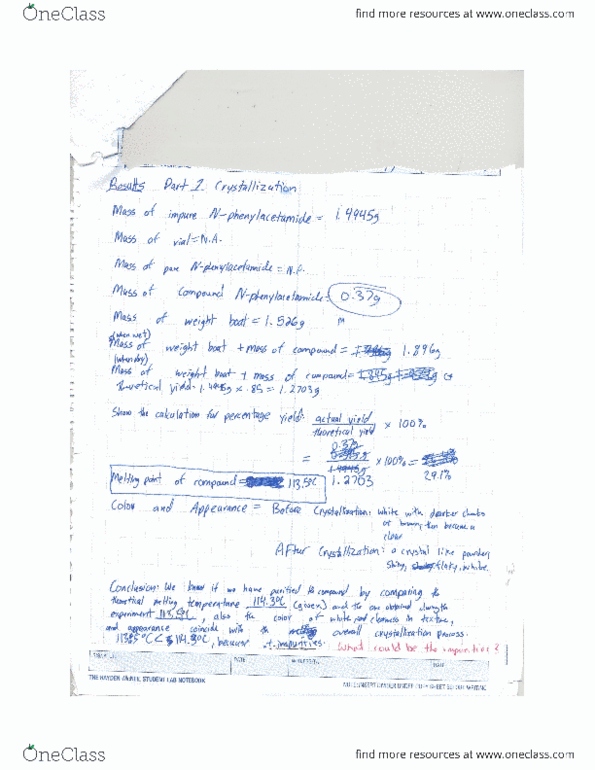 OneClass
find more resources at www.oneclass.com
Results Part 1. Crystallization
Mass of impure N-phenylacetamide = 1.4945g
Mass of vial = N.A.
Mass of pure N-phenylacetamide = N.A.
Mass of compound N-phenylacetamide = 0.37g
Mass of weight boat = 1.526g
(when wet)
Mass of weight boat + mass of compound = 1.896g
(when dry)
Mass of weight boat + mass of compound =
Theoretical yield = 1.4945g x .85 = 1.2703g
Show the calculation for percentage yield: actual yield / theoretical yield x 100%
= 0.37g / 1.2703 x 100% = 29.1%
Melting point of compound = 113.5°C
Color and Appearance = Before Crystallization: white with darker chunks
of brown, then became a
clear
After Crystallization: a crystal like powder,
Shiny, flaky, white.
Conclusion: We know if we have purified the compound by comparing the
theoretical melting temperature 114.3°C (given) and the one obtained during the
experiment 113.5°C, also the color of white and clearness in texture,
and appearance coincide with the overall crystallization process.
113.5°C < 114.3°C, because of impurities. What could be the impurities?
DATE
THE HAYDEN-McNEIL STUDENT LAB NOTEBOOK
OneClass
find more resources at www.oneclass.com